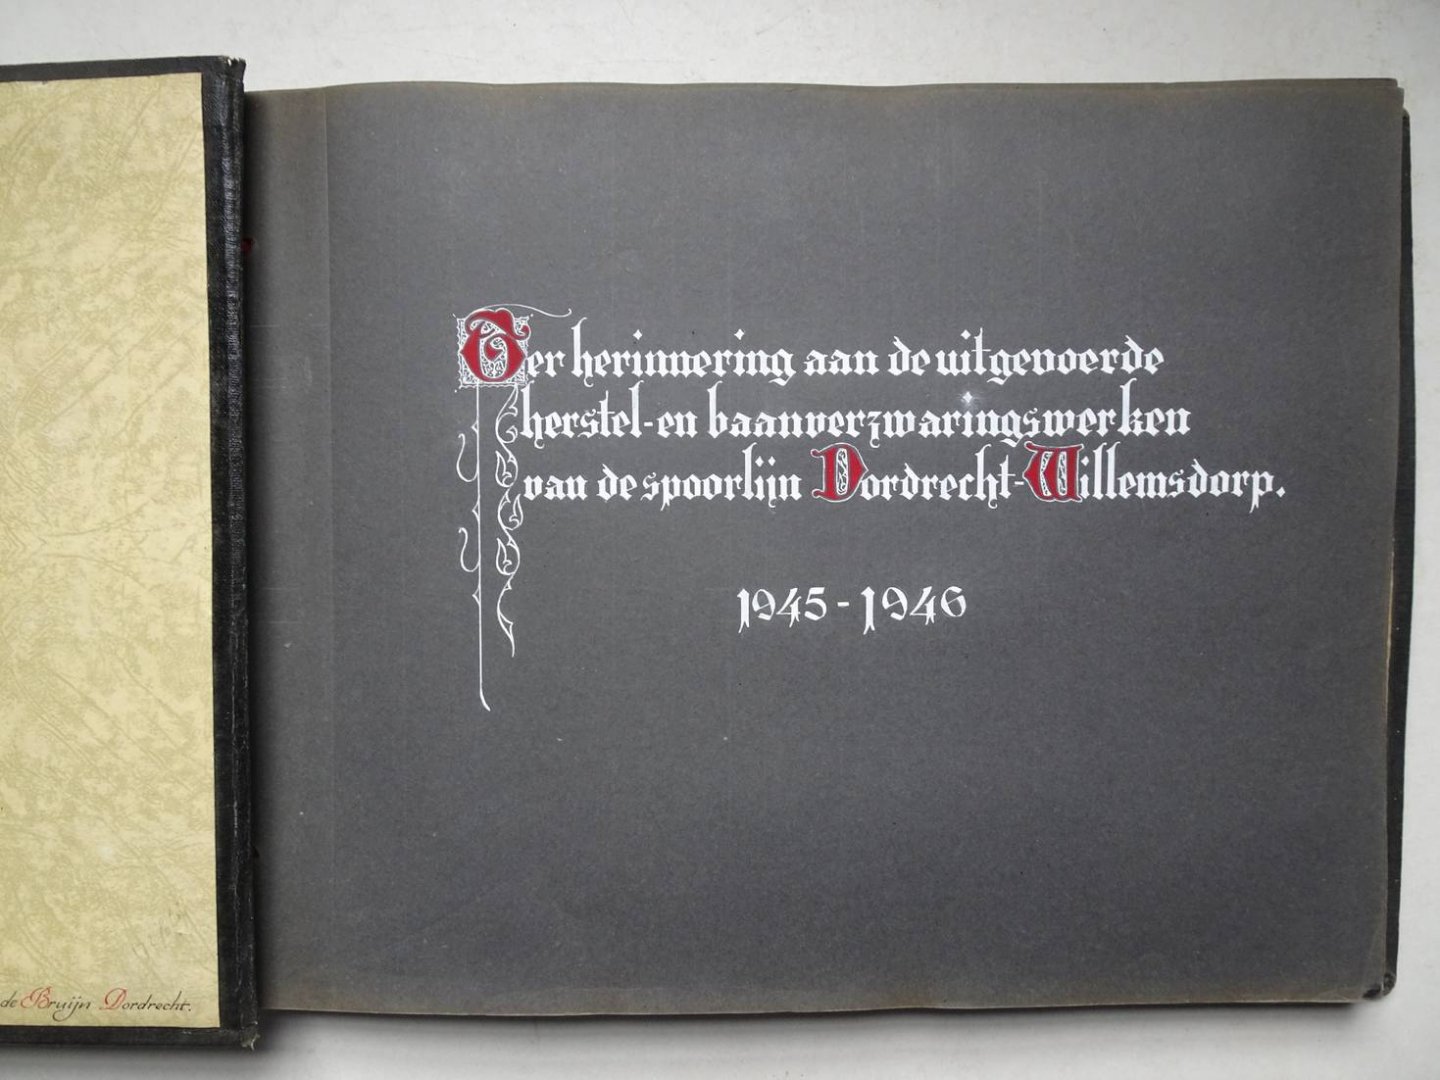 Ter herinnering aan de uitgevoerde
herstel- en baanverzwaringswerken
van de spoorlijn Dordrecht-Willemsdorp.
1945 - 1946
de Bruijn Dordrecht.